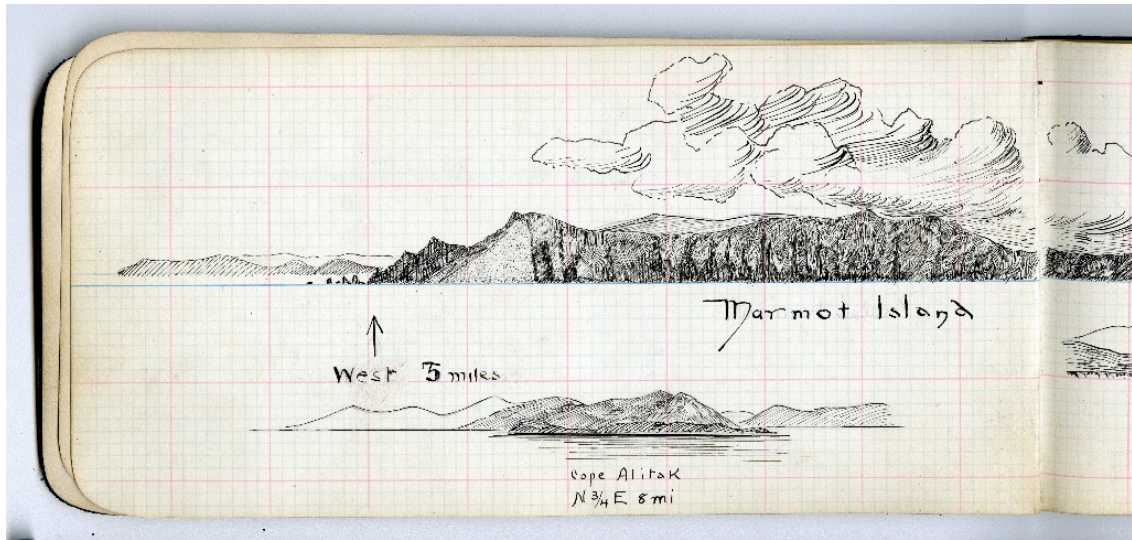 Marmot Island
West 5 miles
Cape Alitak
N 3/4 E 8 mi